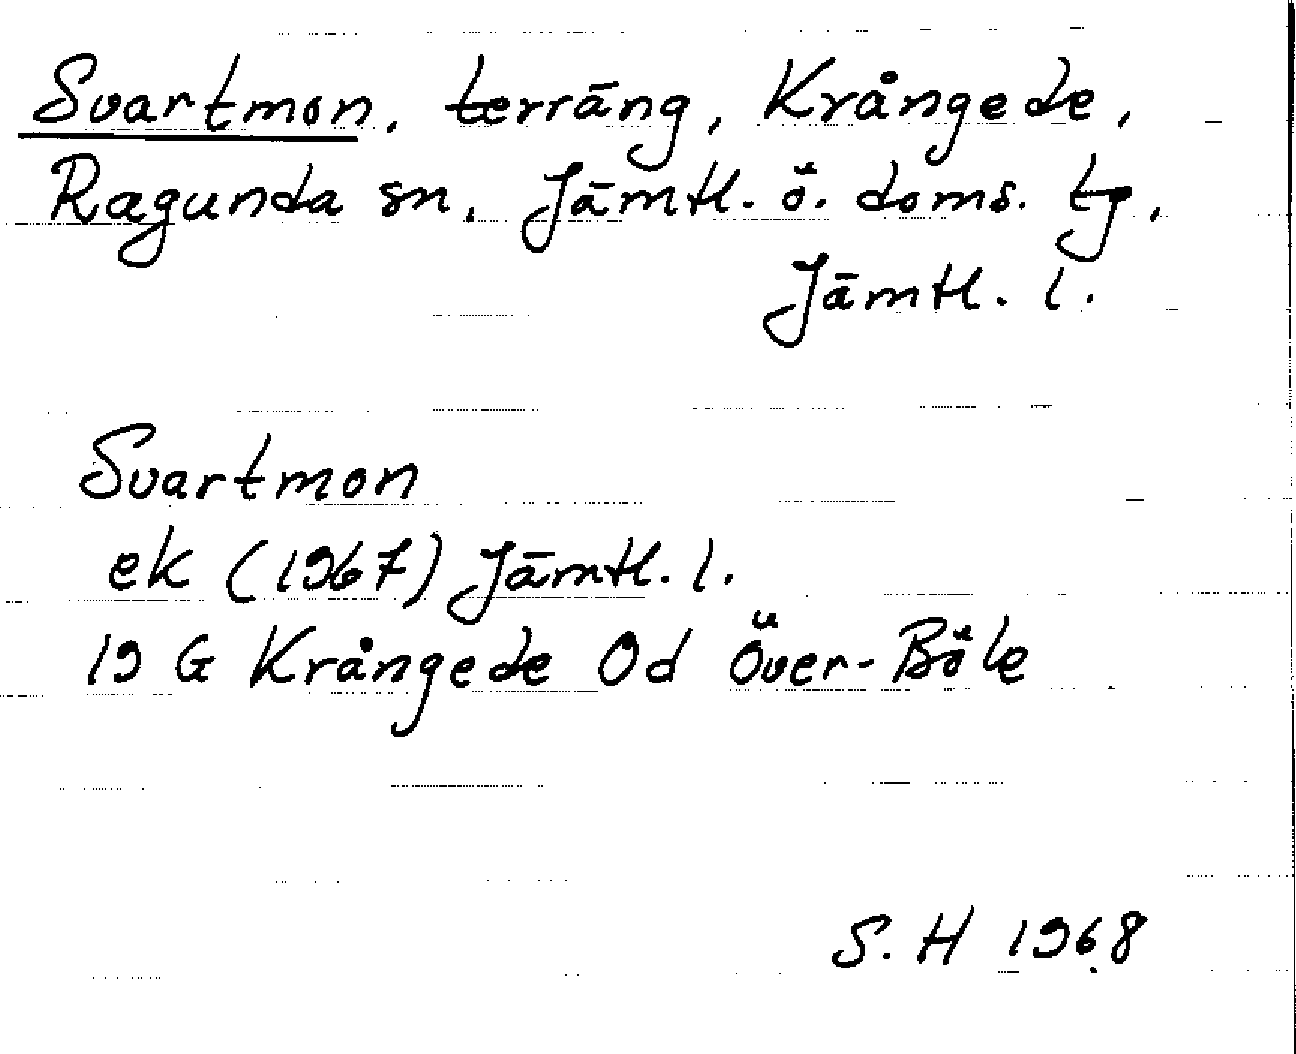 Svartmon, terräng, Krångede,
Ragunda sn, Jämtl. ö. doms. tg,
Jämtl. l.
Svartmon
ek (1967) Jämtl. l.
19 G Krångede 0d Över-Böle
S. H 1968